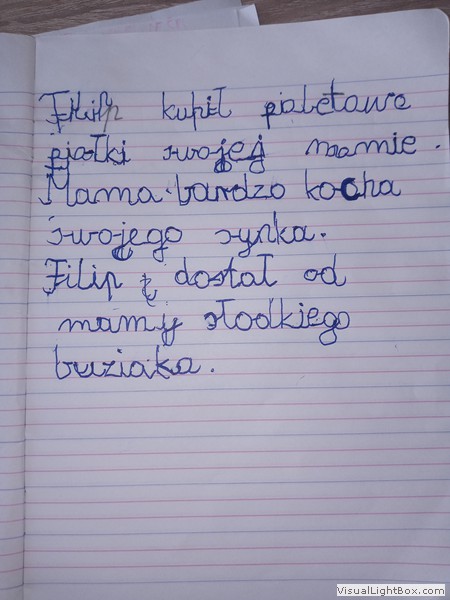 Filip kupił pioletowe
piołki swojej mamie.
Mama bardzo kocha
swojego synka.
Filip dostał od
mamy słodkiego
buziaka.
VisualLightBox.com